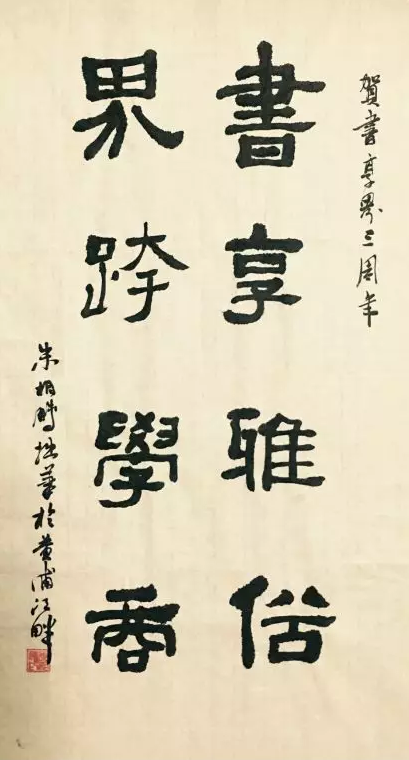 賀書享界三周年
書享雅俗
界跨學商
朱相拙筆於黄浦江畔